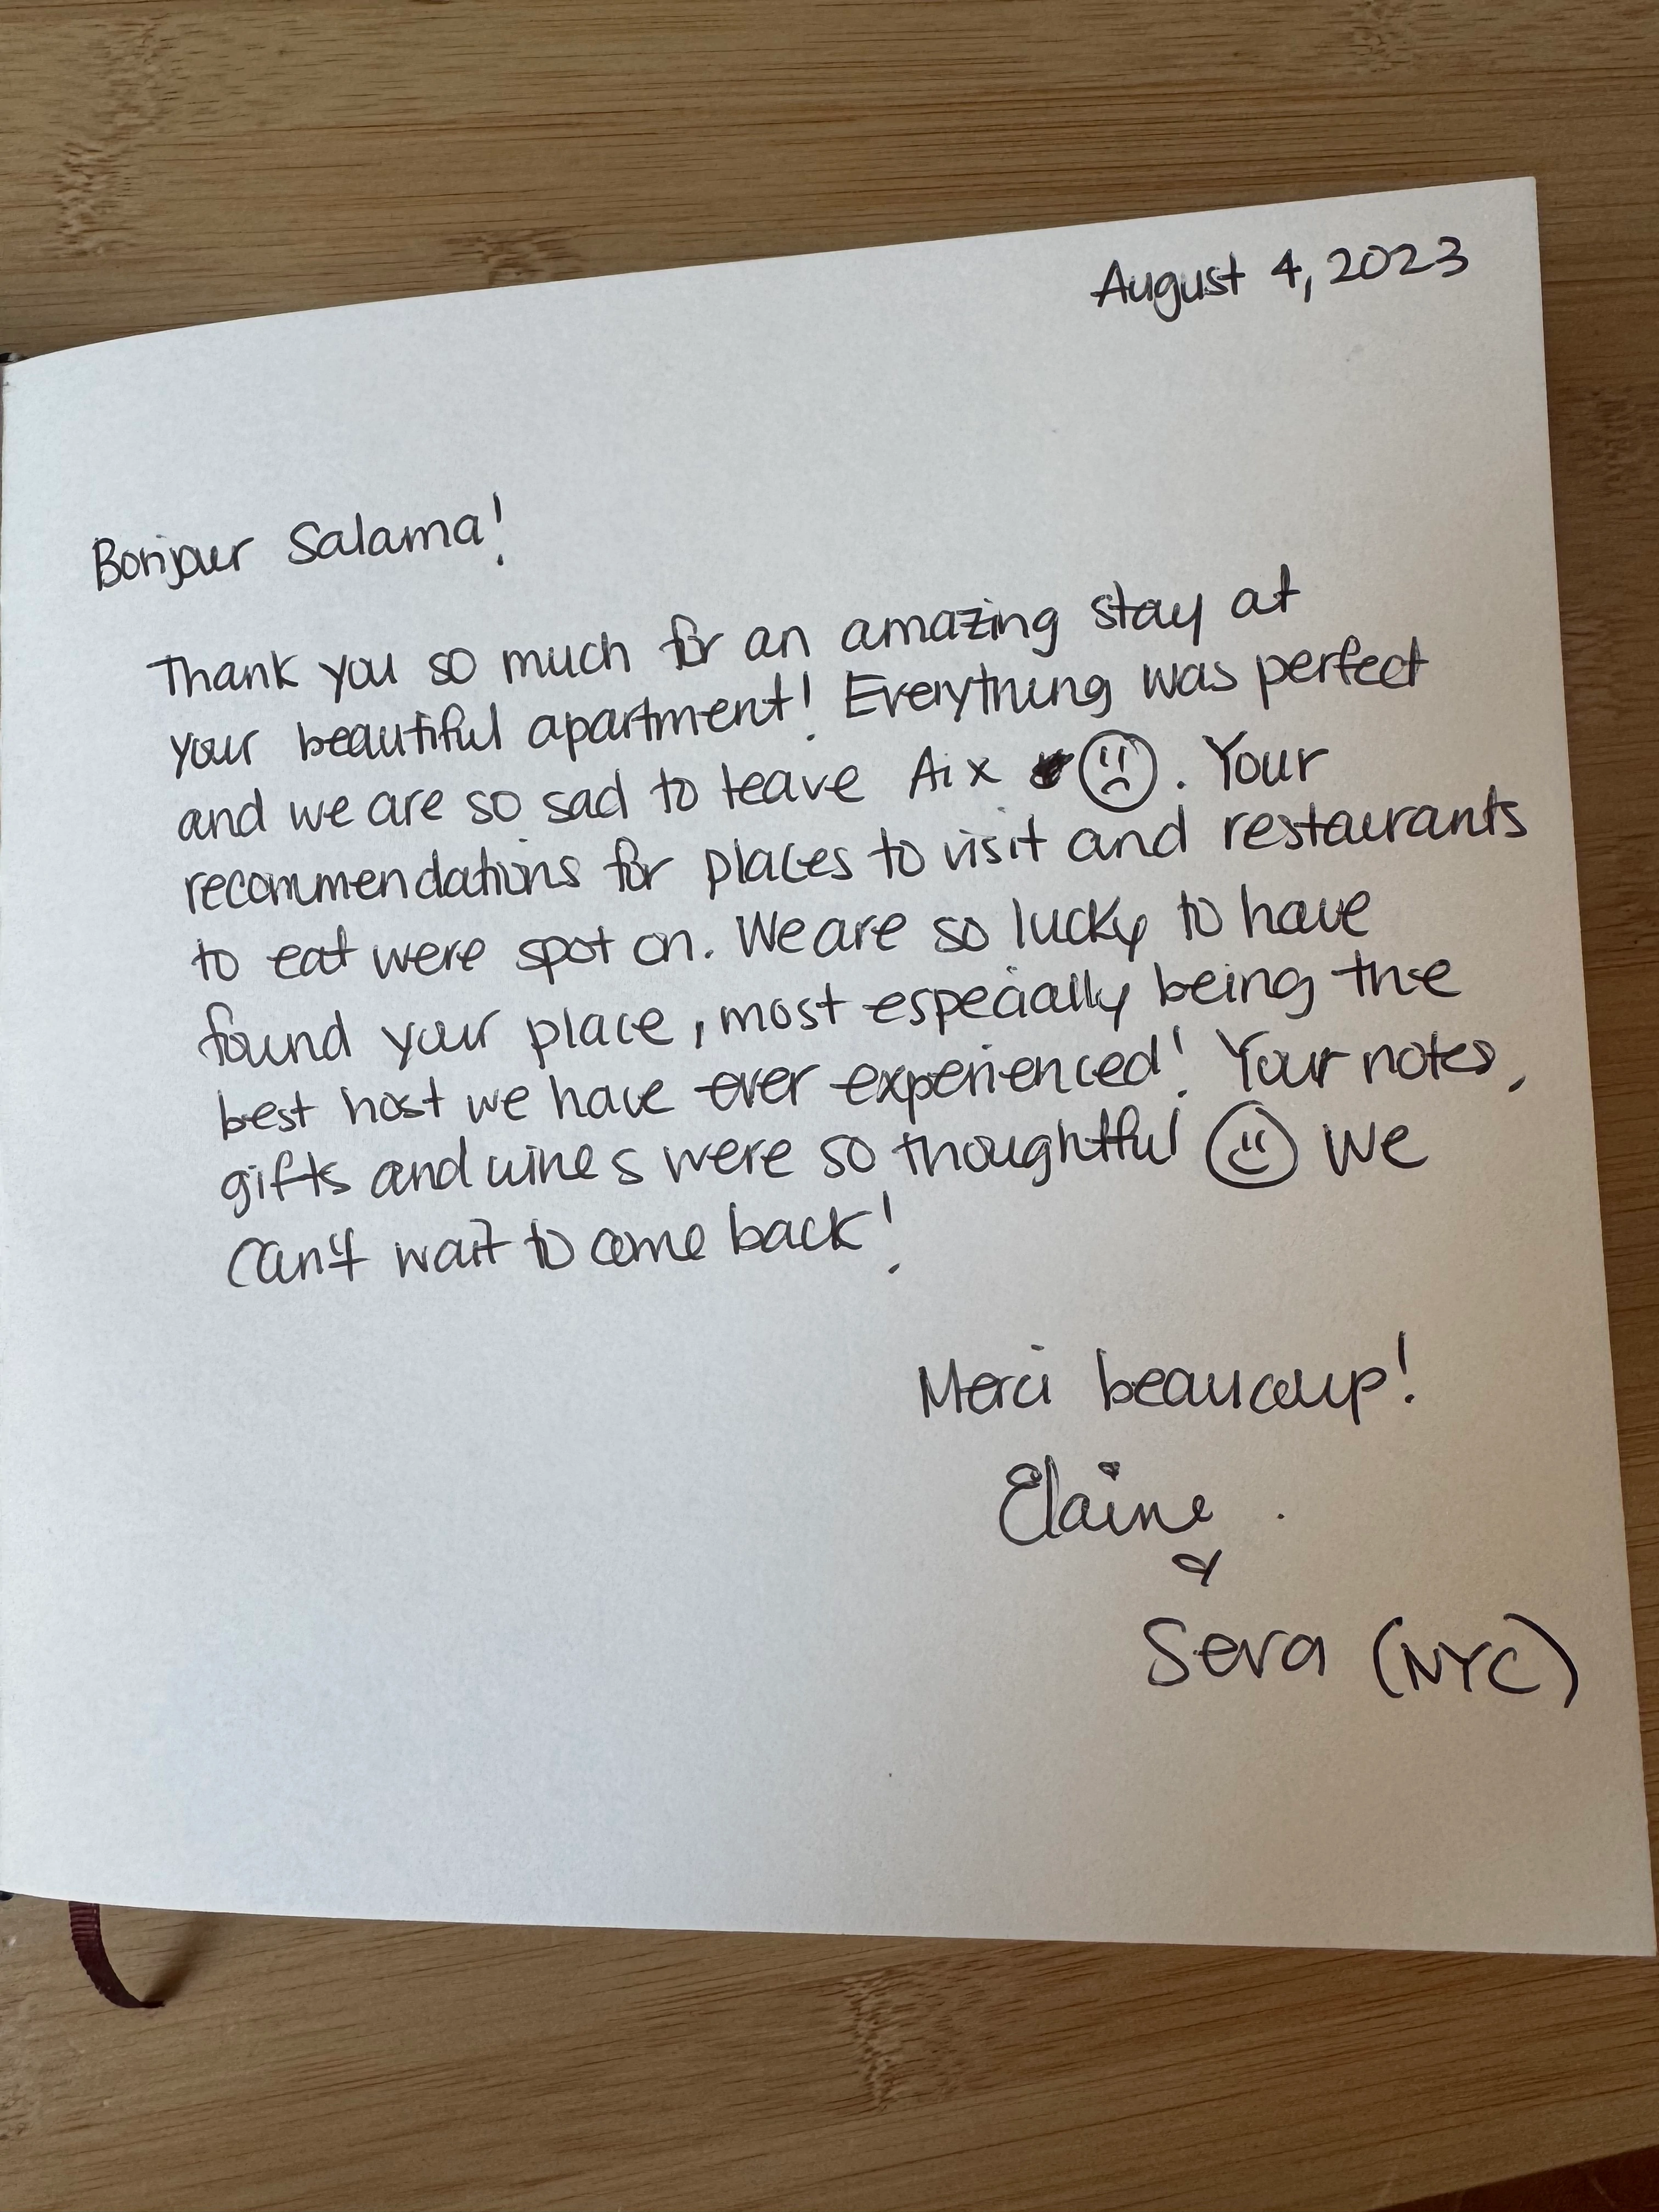 August 4, 2023
Bonjour Salama!
Thank you so much for an amazing stay at
your beautiful apartment! Everything was perfect
and we are so sad to leave Aix ☹. Your
recommendations for places to visit and restaurants
to eat were spot on. We are so lucky to have
found your place, most especially being the
best host we have ever experienced! Your notes,
gifts and wines were so thoughtful ☺ We
can't wait to come back!
Merci beaucoup!
Elaine
&
Seva (NYC)